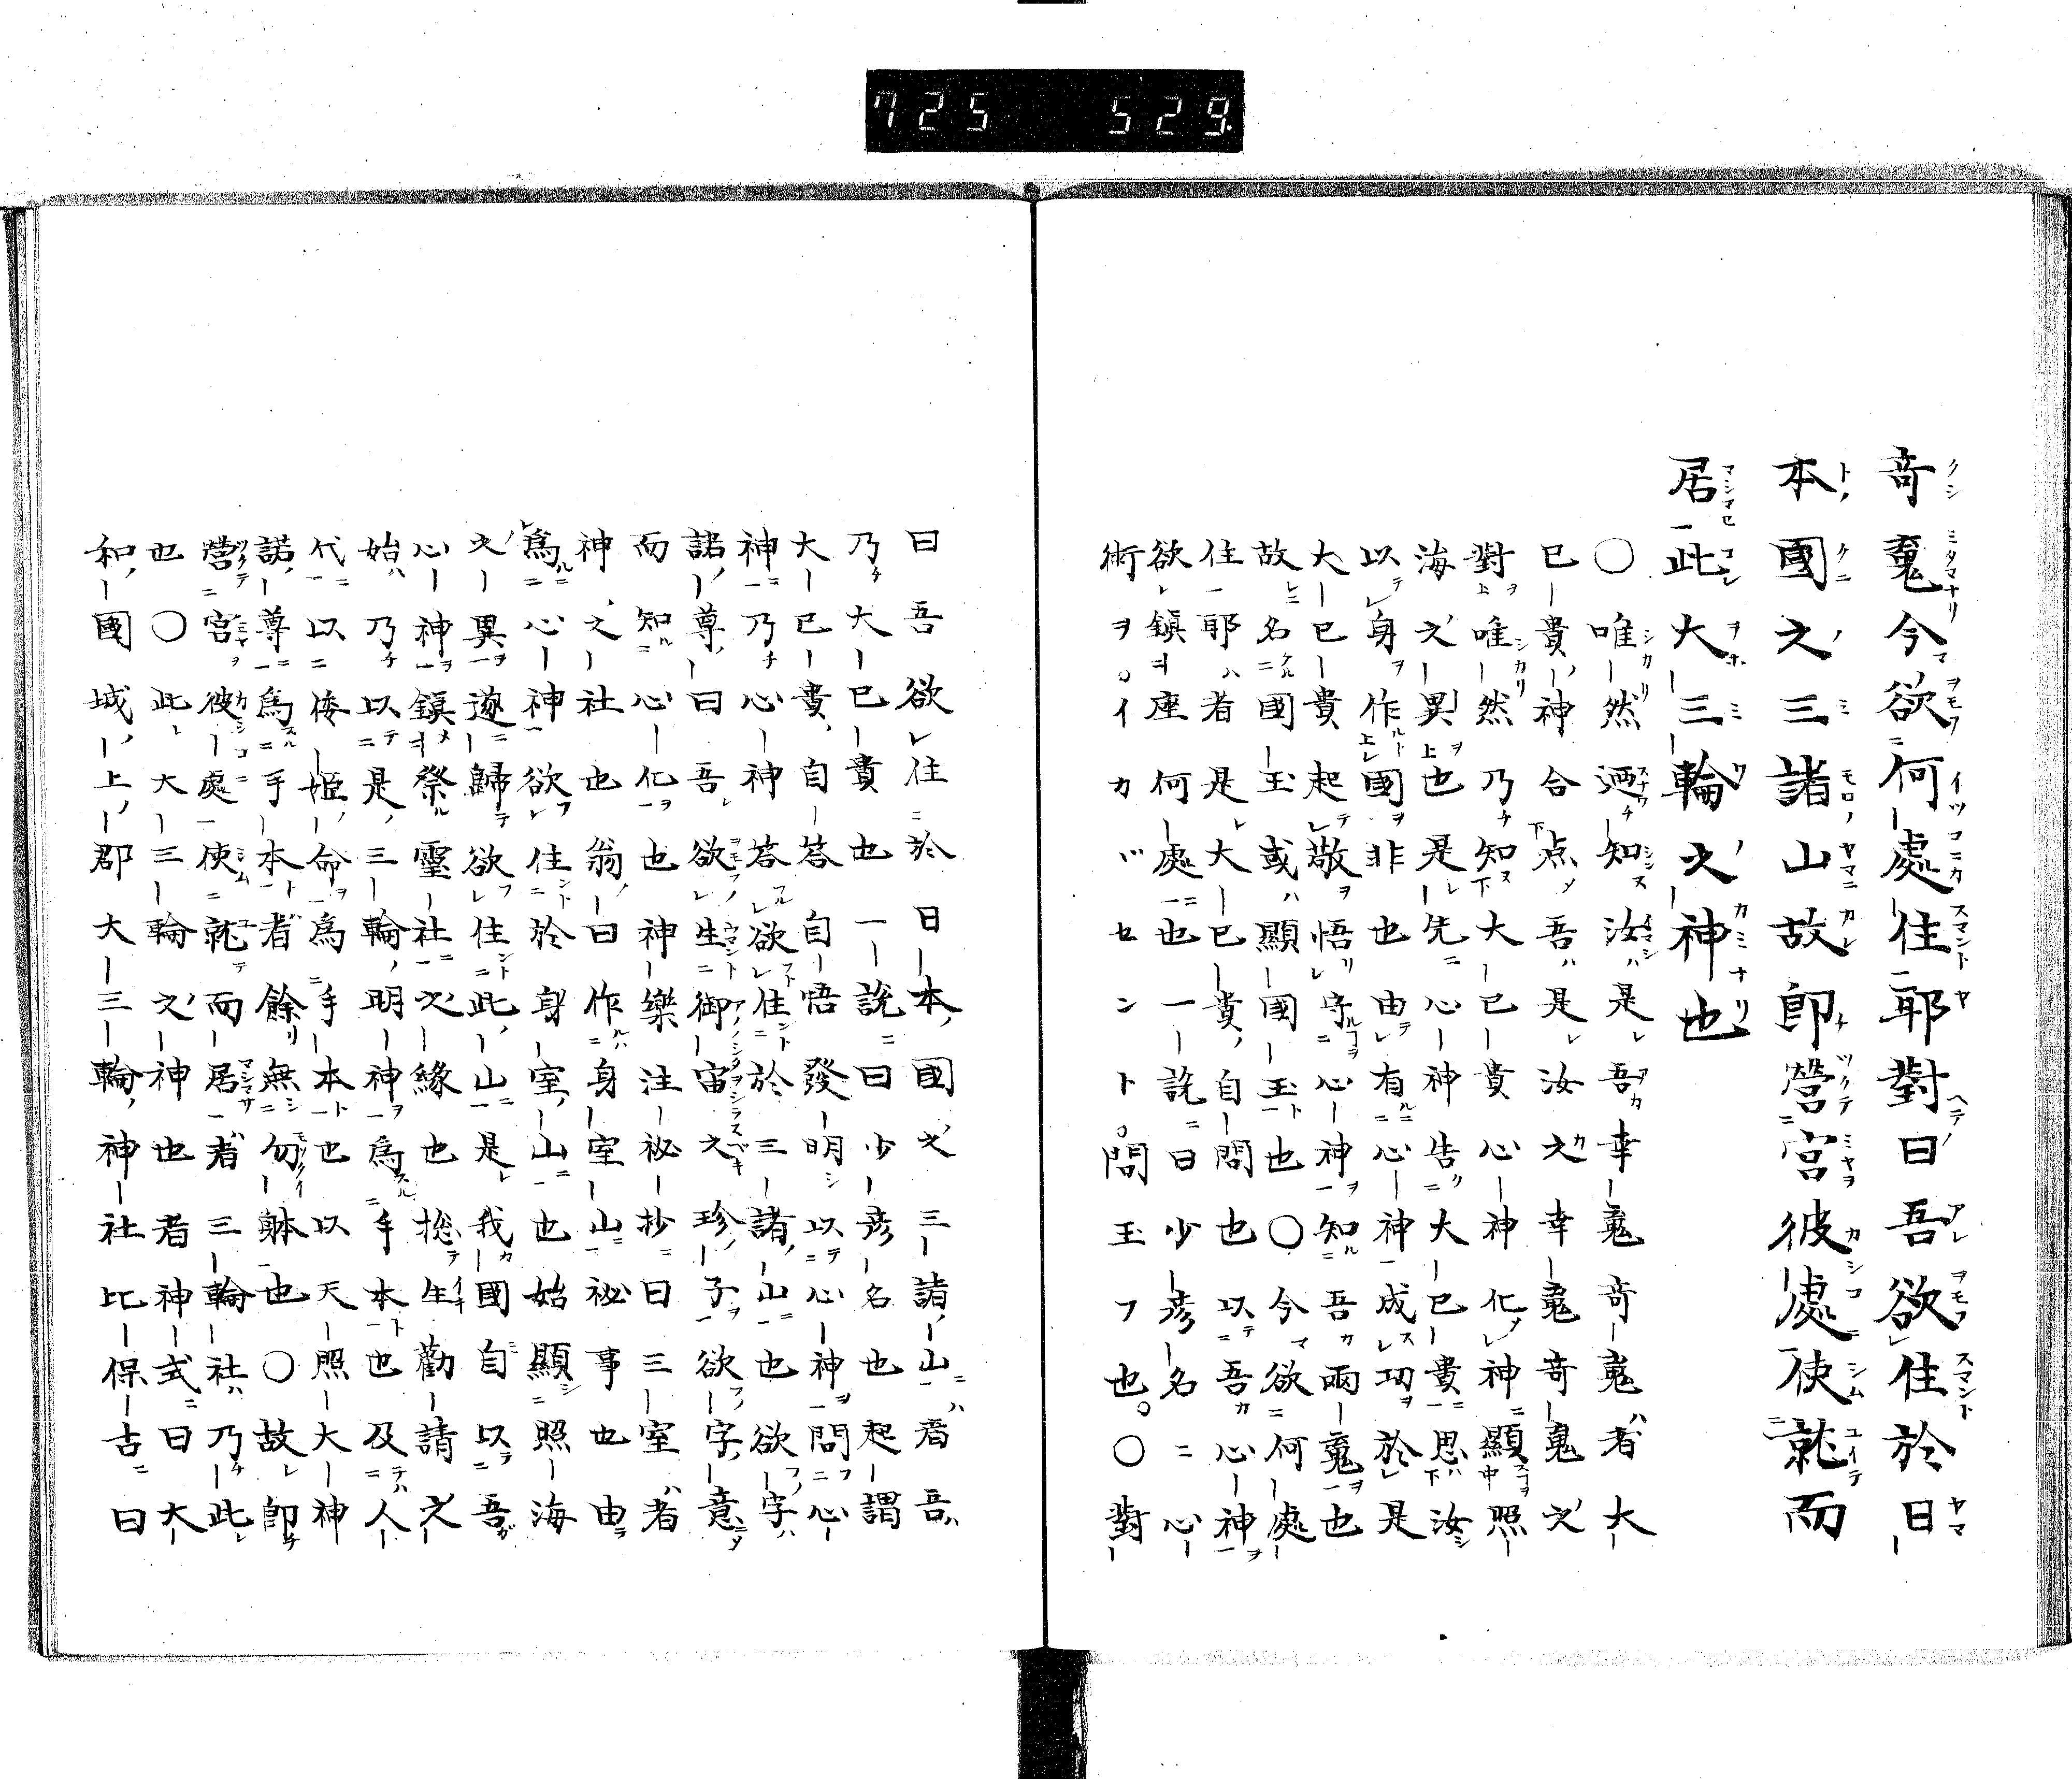 725 529
奇䰟今欲何處住耶對曰吾欲住於日
本國之三諸山故即營宮彼處使就而
居此大三輪之神也
○唯然廼知汝是吾幸䰟奇䰟者大
已貴神合点吾是汝之幸䰟奇䰟之
對唯然乃知大已貴心神化神顯照
海之異也是先心神告大已貴思汝
以身作國非也由有心神成功於是
大已貴起敬悟守心神知吾兩䰟也
故名國玉或顯國玉也○今欲何處
住耶者是大已貴自問也以吾心神
欲鎮座何處也一説曰少彦名ニ心
術ヲ。イカヾセント。問玉フ也。○對
曰吾欲住於日本國之三諸山者吾
乃大已貴也一説曰少彦名也起謂
大已貴自答自悟發明以心神問心
神乃心神答欲住於三諸山也欲字
諾尊曰吾欲生御宙之珍子欲字意
而知心化也神樂注秘抄曰三室者
神之社也翁曰作身室山秘事也由
爲心神欲住於身室山也始顯照海
之異遂歸欲住此山是我國自以吾
心神鎮祭靈社之緣也揔生勸請之
始乃以是三輪明神爲手本也及人
代以倭姫命爲手本也以天照大神
諾尊爲手本者餘無勿躰也○故即
營宮彼處使就而居者三輪社乃此
也○此大三輪之神也者神式曰大
和國城上郡大三輪神社比保古曰